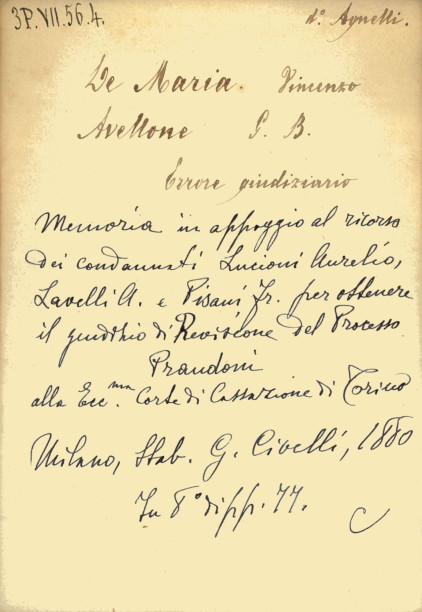 3P. VII. 56. 4.
d.º Agnelli.
De Maria. Vincenzo
Avellone G. B.
Errore giudiziario
Memoria in appoggio al ricorso
dei condannati Lucioni Aurelio,
Lavelli A. e Pisani Fr. per ottenere
il giudizio di Revisione del Processo
Prandoni
alla Ecc.ma Corte di Cassazione di Torino
Milano, Stab. G. Civelli, 1880
In 8º di pp. 77.